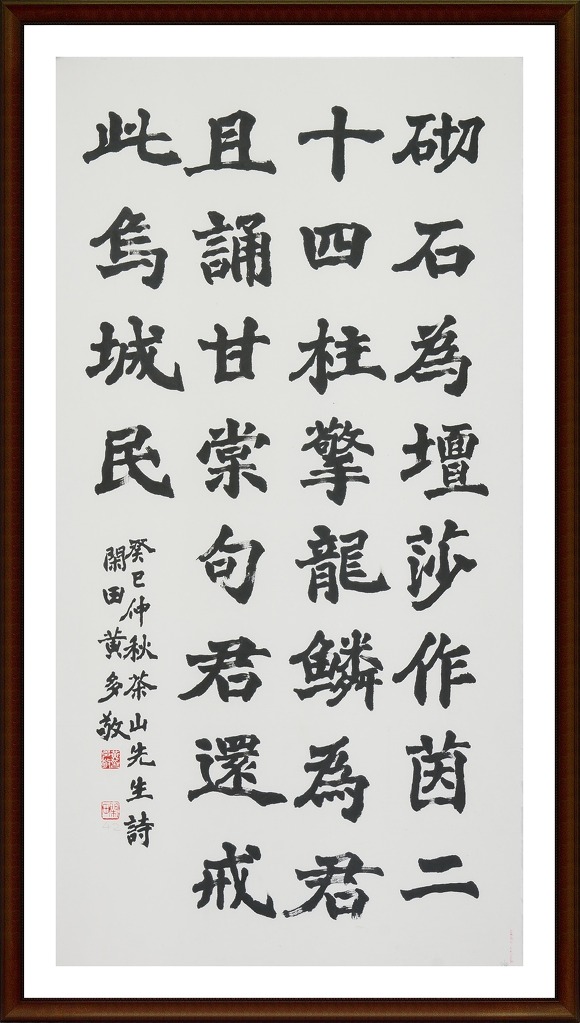 砌石為壇莎作茵二
十四柱擎龍鱗為君
且誦甘棠句君還戒
此烏城民
癸巳仲秋茶山先生詩
閑田黃多敬